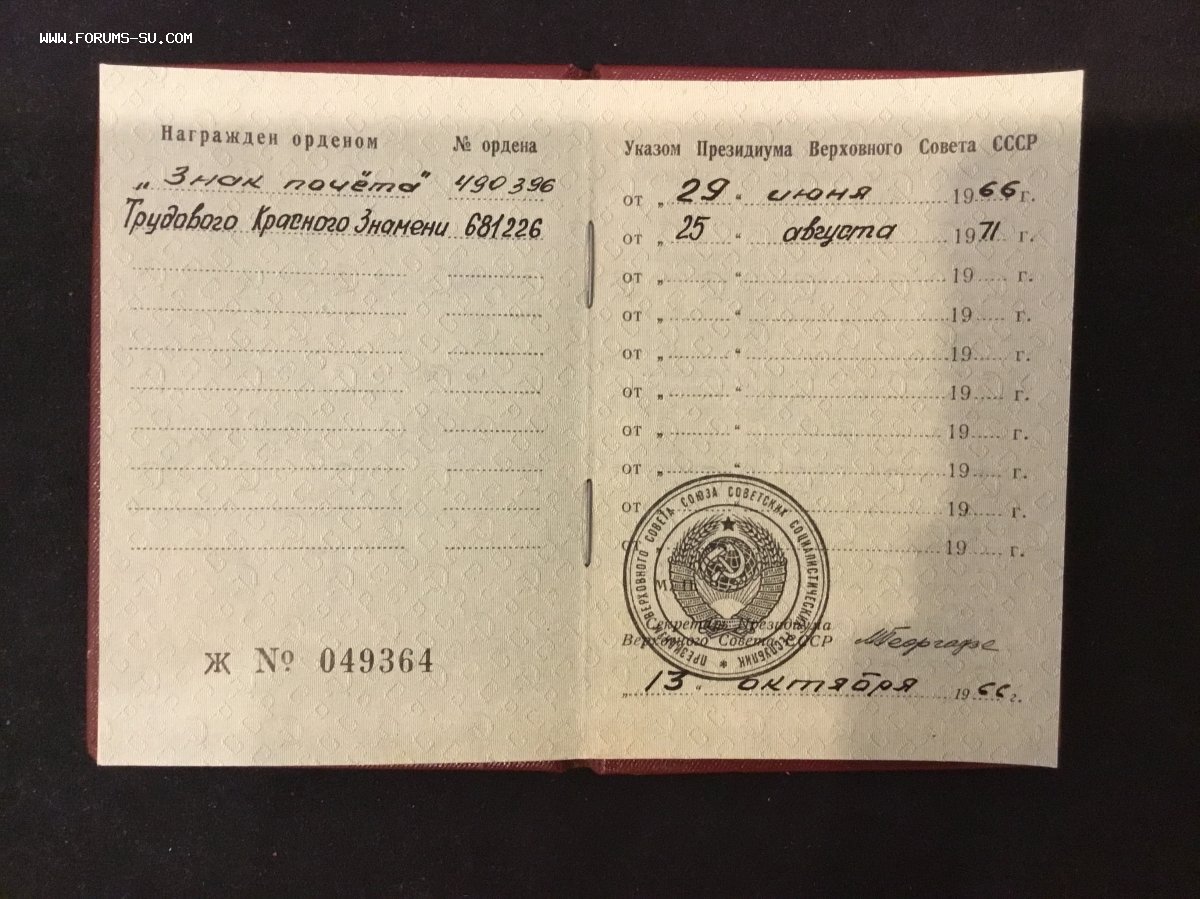 WWW.FORUMS-SU.COM
Награжден орденом № ордена
„Знак почёта" 490396
Трудового Красного Знамени 681226
Ж № 049364
Указом Президиума Верховного Совета СССР
от „ 29 “ июня 1966 г.
от „ 25 “ августа 1971 г.
от „ “ 19 г.
от „ “ 19 г.
от „ “ 19 г.
от „ “ 19 г.
от „ “ 19 г.
от „ “ 19 г.
от „ “ 19 г.
от „ “ 19 г.
ПРЕЗИДИУМ ВЕРХОВНОГО СОВЕТА СОЮЗА СОВЕТСКИХ СОЦИАЛИСТИЧЕСКИХ РЕСПУБЛИК
М. П.
Секретарь Президиума
Верховного Совета СССР МГеоргадзе
„ 13 “ октября 1966 г.